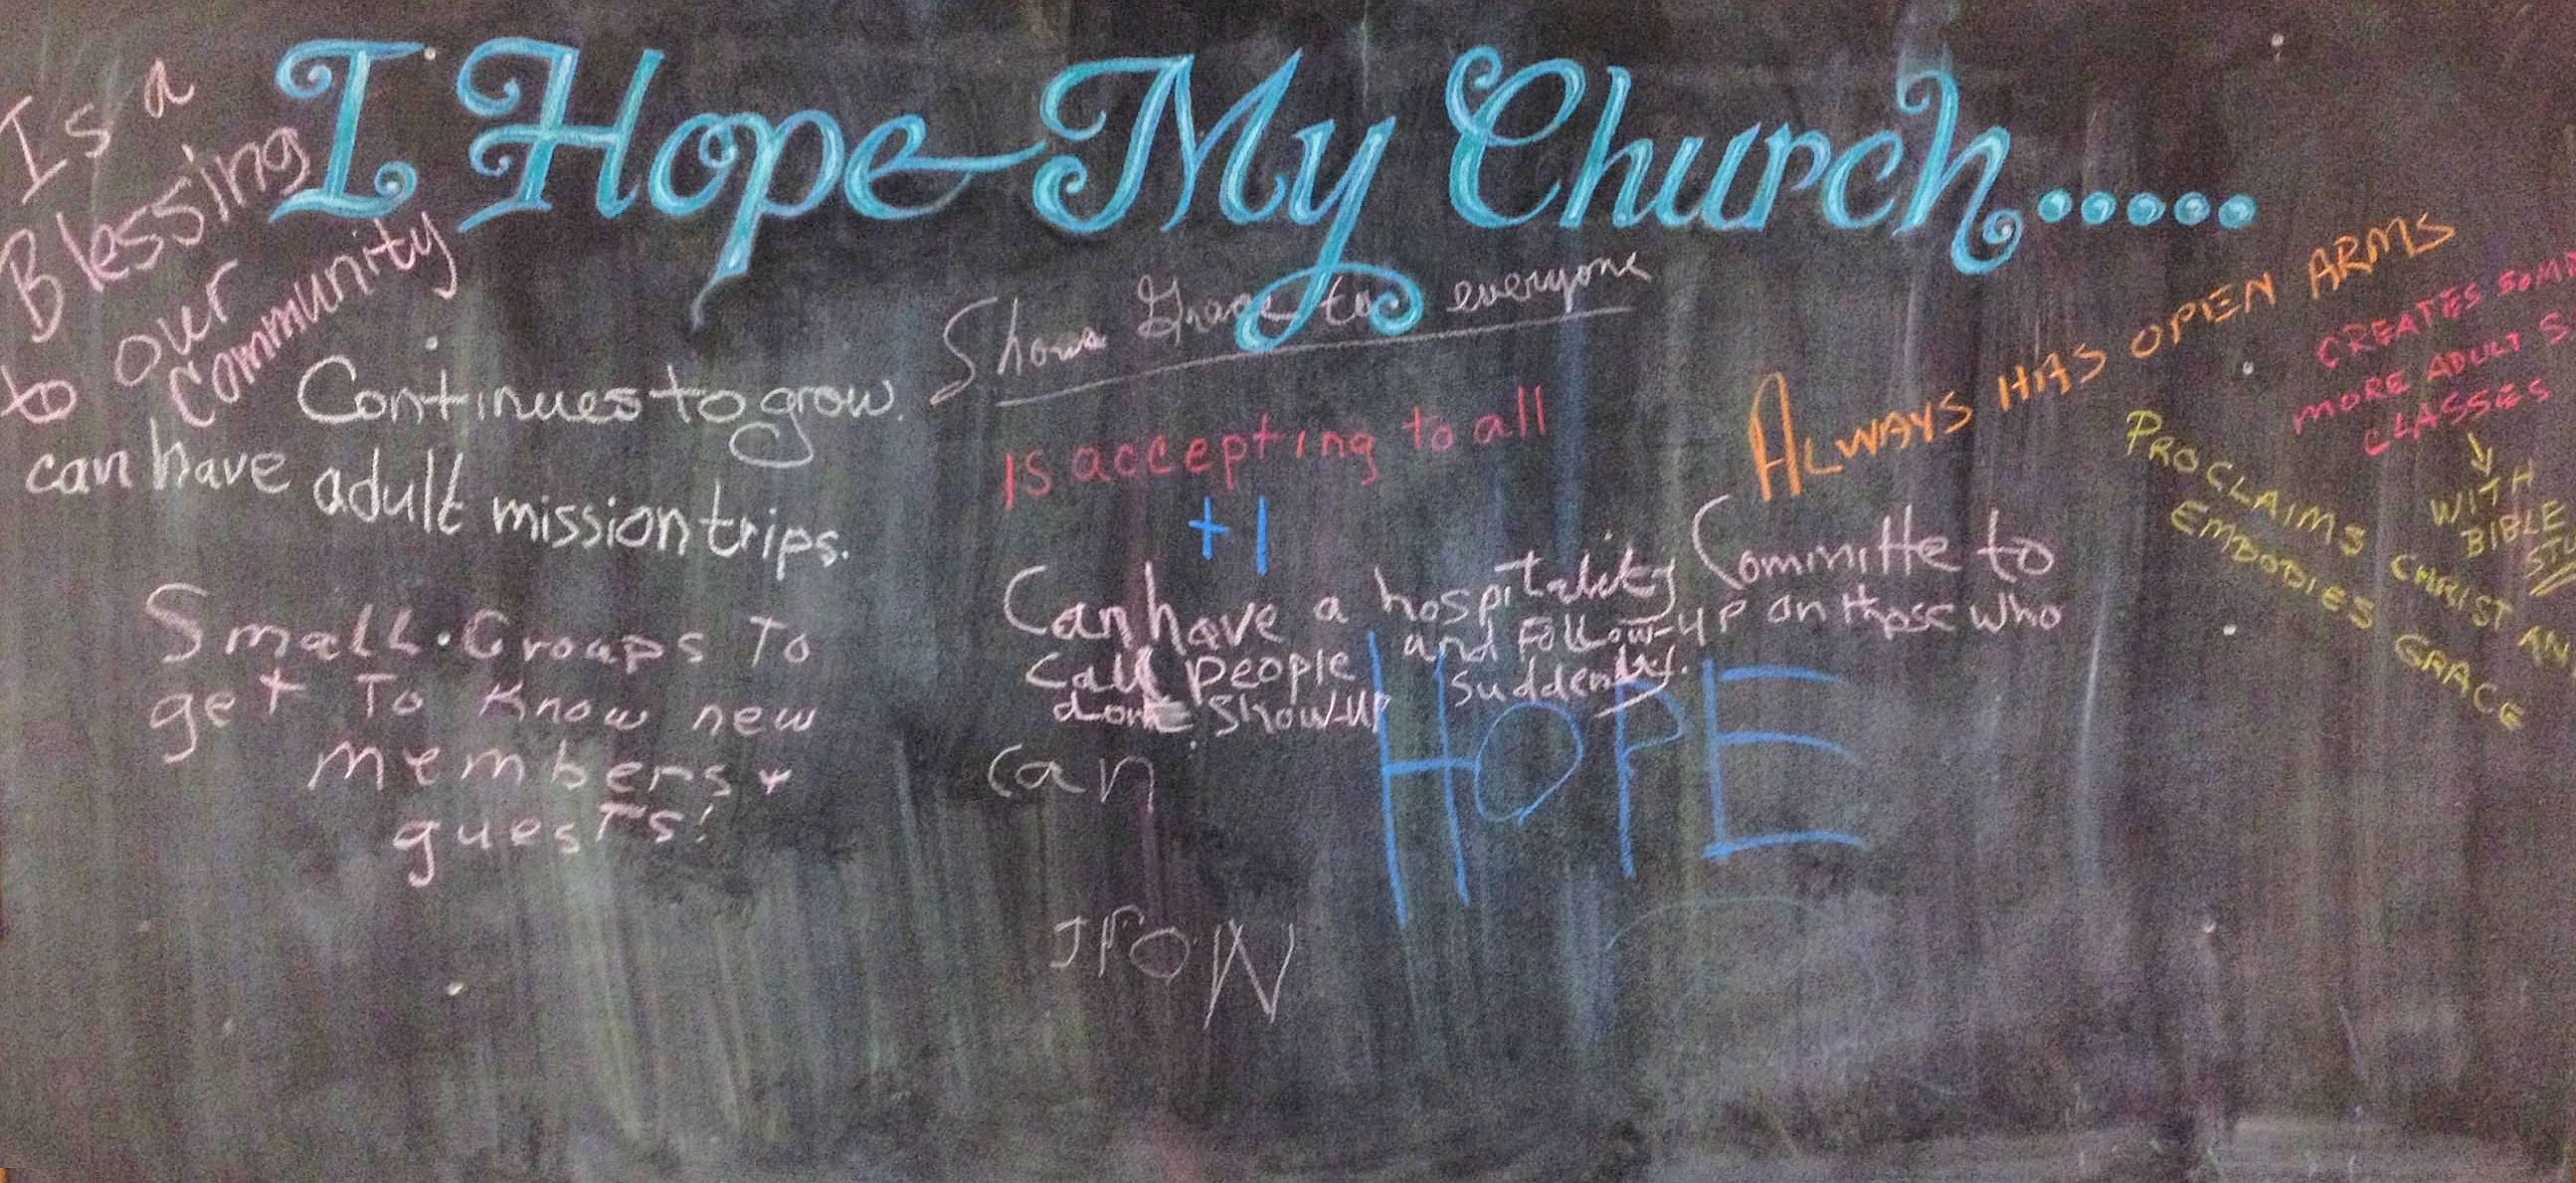 I Hope My Church.....
Is a
Blessing
to our
Community
Shows Grace to everyone
Continues to grow.
can have adult mission trips.
Small Groups To
get To Know new
members +
guests!
Is accepting to all
+1
Can have a hospitality Committe to
Call people and Follow-up on those who
dont Show-up suddenly.
Can
HOPE
ALWAYS HAS OPEN ARMS
CREATES
MORE ADULT S
CLASSES
↓
WITH
BIBLE
PROCLAIMS CHRIST AN
EMBODIES GRACE